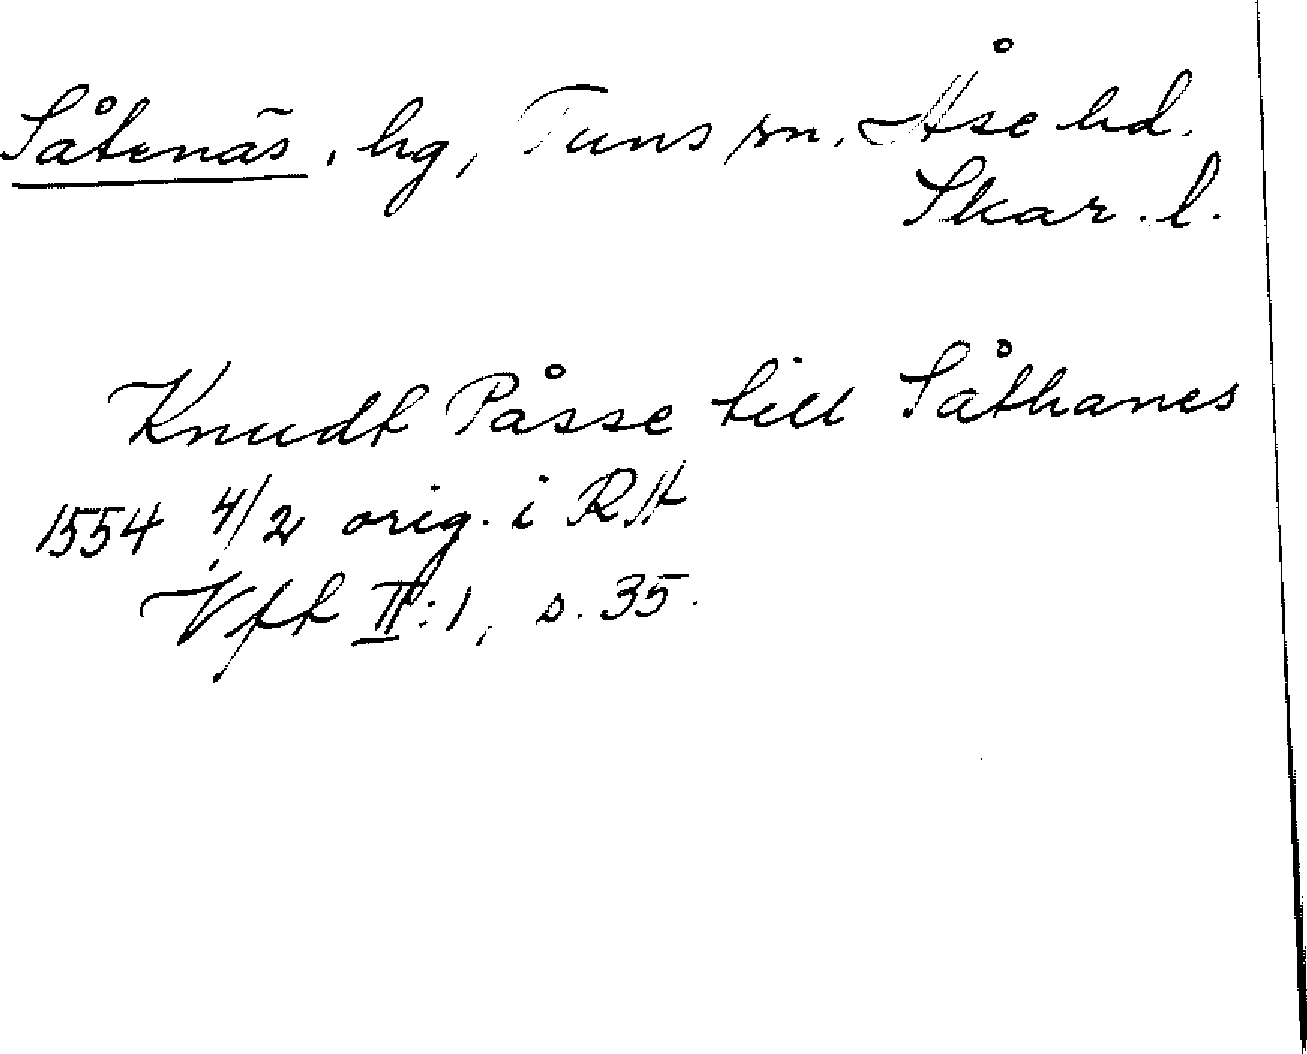 Såtenäs, hg, Tuns sn, Åse hd.
Skar. l.
Knudt Påsse till Såthanes
1554 4/2 orig. i RH
Vff II:1, s. 35.